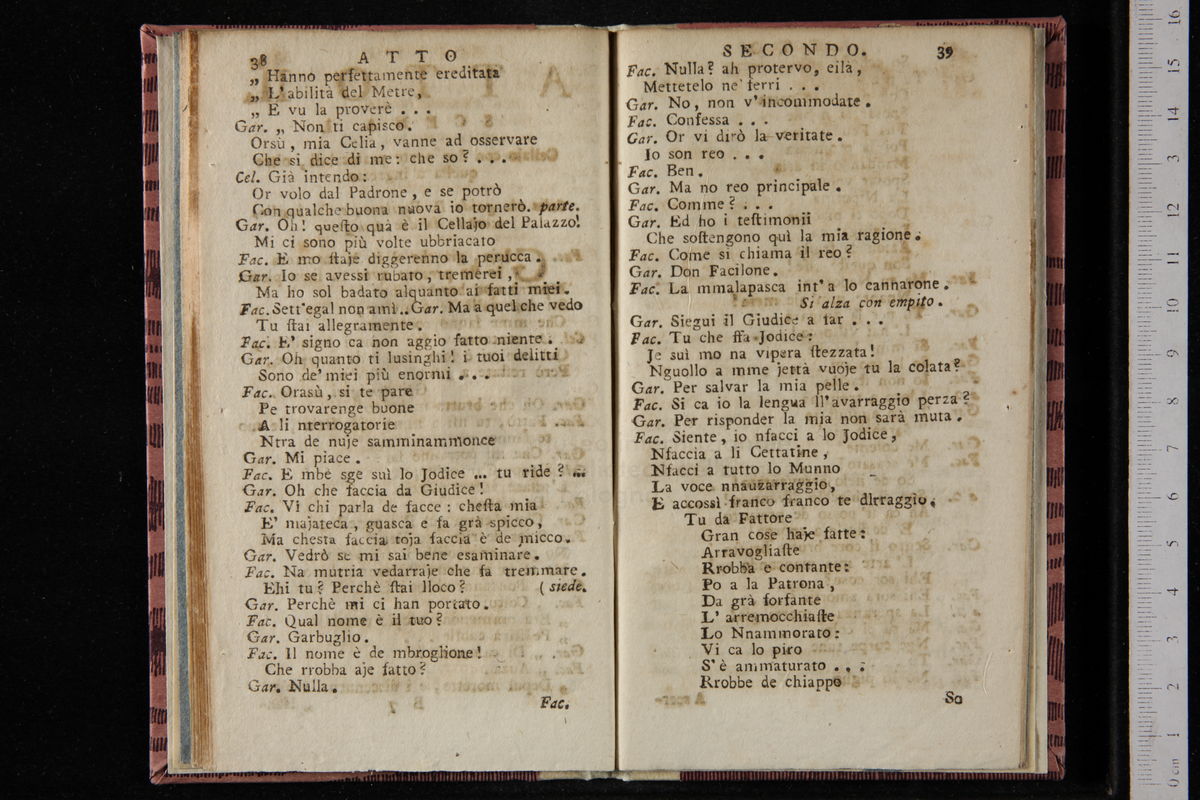 38 ATTO
„ Hanno perfettamente ereditata
„ L'abilità del Metre,
„ E vu la proverè . . .
Gar. „ Non ti capisco.
Orsù, mia Celia, vanne ad osservare
Che si dice di me: che so? . . .
Cel. Già intendo:
Or volo dal Padrone, e se potrò
Con qualche buona nuova io tornerò. parte.
Gar. Oh! questo qua è il Cellajo del Palazzo!
Mi ci sono più volte ubbriacato
Fac. E mo staje diggerenno la perucca.
Gar. Io se avessi rubato, tremerei,
Ma ho sol badato alquanto ai fatti miei.
Fac. Sett'egal non ami .. Gar. Ma a quel che vedo
Tu stai allegramente.
Fac. E' signo ca non aggio fatto niente.
Gar. Oh quanto ti lusinghi! i tuoi delitti
Sono de' miei più enormi . . .
Fac. Orasù, si te pare
Pe trovarenge buone
A li nterrogatorie
Ntra de nuje samminammonce
Gar. Mi piace.
Fac. E mbè sge suì lo Jodice ... tu ride? ...
Gar. Oh che faccia da Giudice!
Fac. Vi chi parla de facce: chesta mia
E' majateca, guasca e fa grà spicco,
Ma chesta faccia toja faccia è de micco.
Gar. Vedrò se mi sai bene esaminare.
Fac. Na mutria vedarraje che fa tremmare.
Ehi tu? Perchè stai lloco? (siede.
Gar. Perchè mi ci han portato.
Fac. Qual nome è il tuo?
Gar. Garbuglio.
Fac. Il nome è de mbroglione!
Che rrobba aje fatto?
Gar. Nulla.
Fac.
SECONDO. 39
Fac. Nulla? ah protervo, eilà,
Mettetelo ne' ferri . . .
Gar. No, non v'incommodate.
Fac. Confessa . . .
Gar. Or vi dirò la veritate.
Io son reo . . .
Fac. Ben.
Gar. Ma no reo principale.
Fac. Comme? . . .
Gar. Ed ho i testimonii
Che sostengono quì la mia ragione.
Fac. Come si chiama il reo?
Gar. Don Facilone.
Fac. La mmalapasca int'a lo cannarone.
Si alza con empito.
Gar. Siegui il Giudice a far . . .
Fac. Tu che ffa Jodice:
Je suì mo na vipera stezzata!
Nguollo a mme jettà vuoje tu la colata?
Gar. Per salvar la mia pelle.
Fac. Si ca io la lengua ll'avarraggio perza?
Gar. Per risponder la mia non sarà muta.
Fac. Siente, io nfacci a lo Jodice,
Nfaccia a li Cettatine,
Nfacci a tutto lo Munno
La voce nnauzarraggio,
E accossì franco franco te dirraggio,
Tu da Fattore
Gran cose haje fatte:
Arravogliaste
Rrobba e contante:
Po a la Patrona,
Da grà forfante
L' arremocchiaste
Lo Nnammorato:
Vi ca lo piro
S'è ammaturato . . .
Rrobbe de chiappo
So